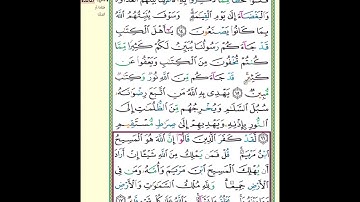 وَٱلْبَغْضَآءَ إِلَىٰ يَوْمِ ٱلْقِيَٰمَةِ ۚ وَسَوْفَ يُنَبِّئُهُمُ ٱللَّهُ
بِمَا كَانُوا۟ يَصْنَعُونَ ١٤ يَٰٓأَهْلَ ٱلْكِتَٰبِ
قَدْ جَآءَكُمْ رَسُولُنَا يُبَيِّنُ لَكُمْ كَثِيرًا مِّمَّا
كُنتُمْ تُخْفُونَ مِنَ ٱلْكِتَٰبِ وَيَعْفُوا۟ عَن
كَثِيرٍ ۚ قَدْ جَآءَكُم مِّنَ ٱللَّهِ نُورٌ وَكِتَٰبٌ
مُّبِينٌ ١٥ يَهْدِى بِهِ ٱللَّهُ مَنِ ٱتَّبَعَ رِضْوَٰنَهُۥ
سُبُلَ ٱلسَّلَٰمِ وَيُخْرِجُهُم مِّنَ ٱلظُّلُمَٰتِ إِلَى
ٱلنُّورِ بِإِذْنِهِۦ وَيَهْدِيهِمْ إِلَىٰ صِرَٰطٍ مُّسْتَقِيمٍ
١٦ لَّقَدْ كَفَرَ ٱلَّذِينَ قَالُوٓا۟ إِنَّ ٱللَّهَ هُوَ ٱلْمَسِيحُ
ٱبْنُ مَرْيَمَ ۚ قُلْ فَمَن يَمْلِكُ مِنَ ٱللَّهِ شَيْـًٔا إِنْ أَرَادَ
أَن يُهْلِكَ ٱلْمَسِيحَ ٱبْنَ مَرْيَمَ وَأُمَّهُۥ وَمَن فِى
ٱلْأَرْضِ جَمِيعًا ۗ وَلِلَّهِ مُلْكُ ٱلسَّمَٰوَٰتِ وَٱلْأَرْضِ